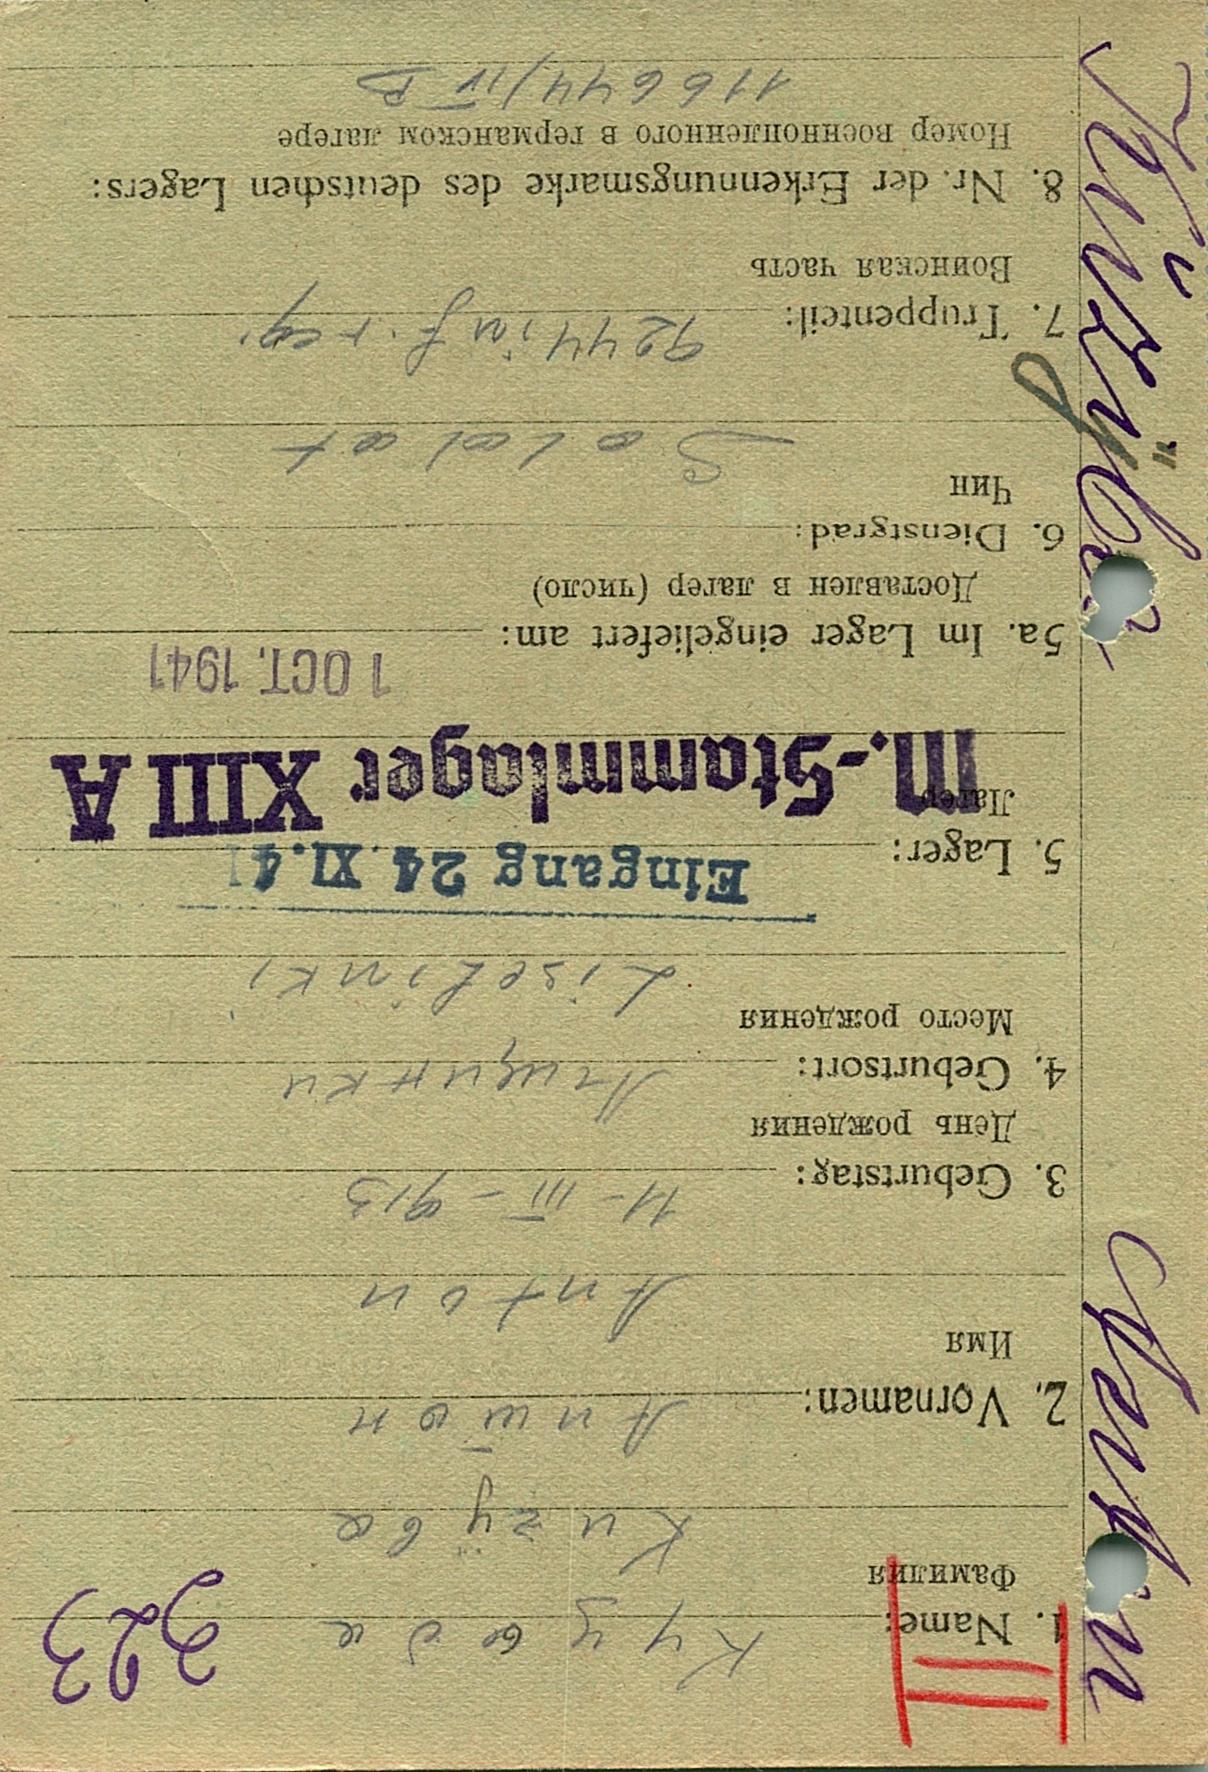 323
1. Name:
Фамилия
2. Vornamen: Антон
Имя
Anton
3. Geburtstag: 11-III-913
День рождения
4. Geburtsort:
Место рождения
Eingang 24. XI. 41
5. Lager:
Лагер
M.-Stammlager XIII A
1 OCT. 1941
5a. Im Lager eingeliefert am:
Доставлен в лагер (число)
6. Dienstgrad:
Чин
Soldat
7. Truppenteil:
Воинская часть
8. Nr. der Erkennungsmarke des deutschen Lagers:
Номер военнопленного в германском лагере
116644/IV B
Anton